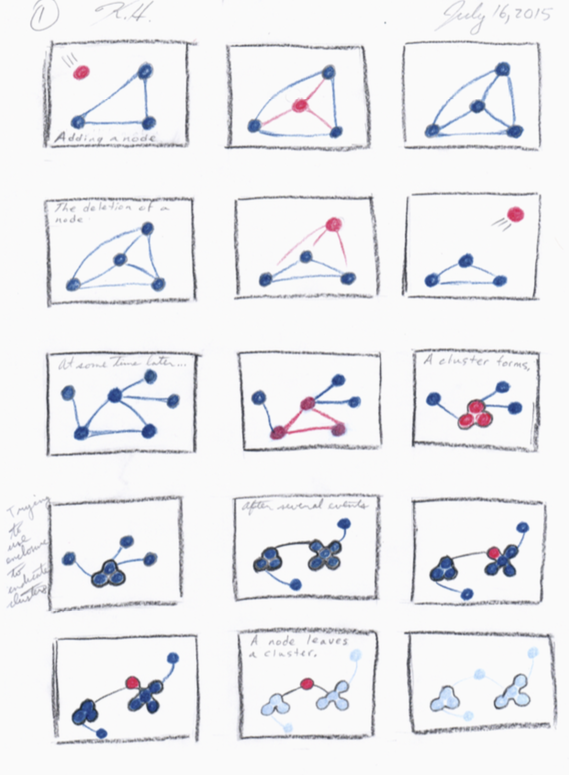 1 K.H. July 16, 2015
Adding a node
The deletion of a
node.
At some time later...
A cluster forms.
Trying
to
use
enclosure
to
indicate
clusters
After several events
A node leaves
a cluster.